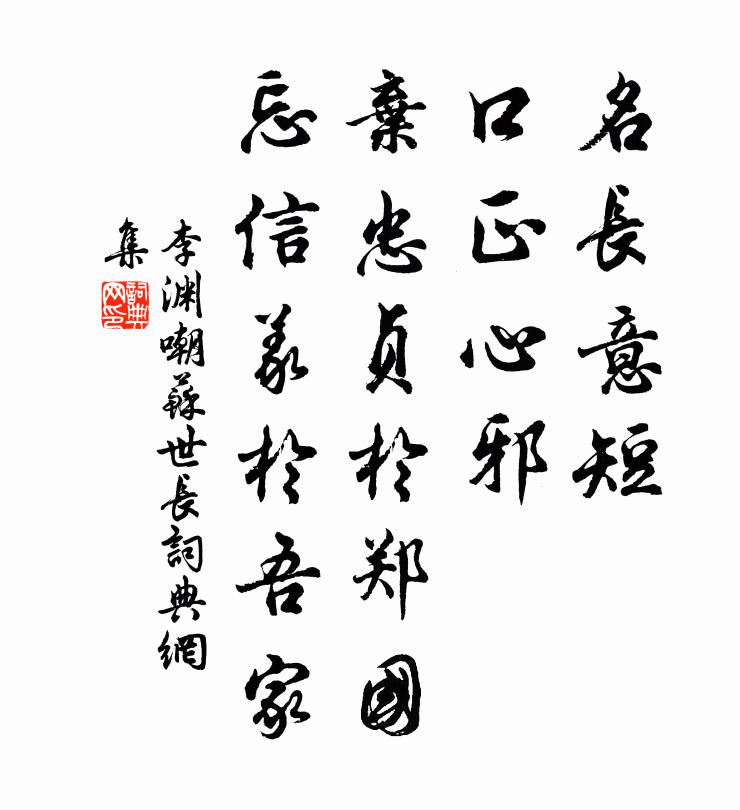 名長意短
口正心邪
棄忠貞於郑國
忘信義於吾家
李淵嘲蘇世長詞典網
集
詞典網印